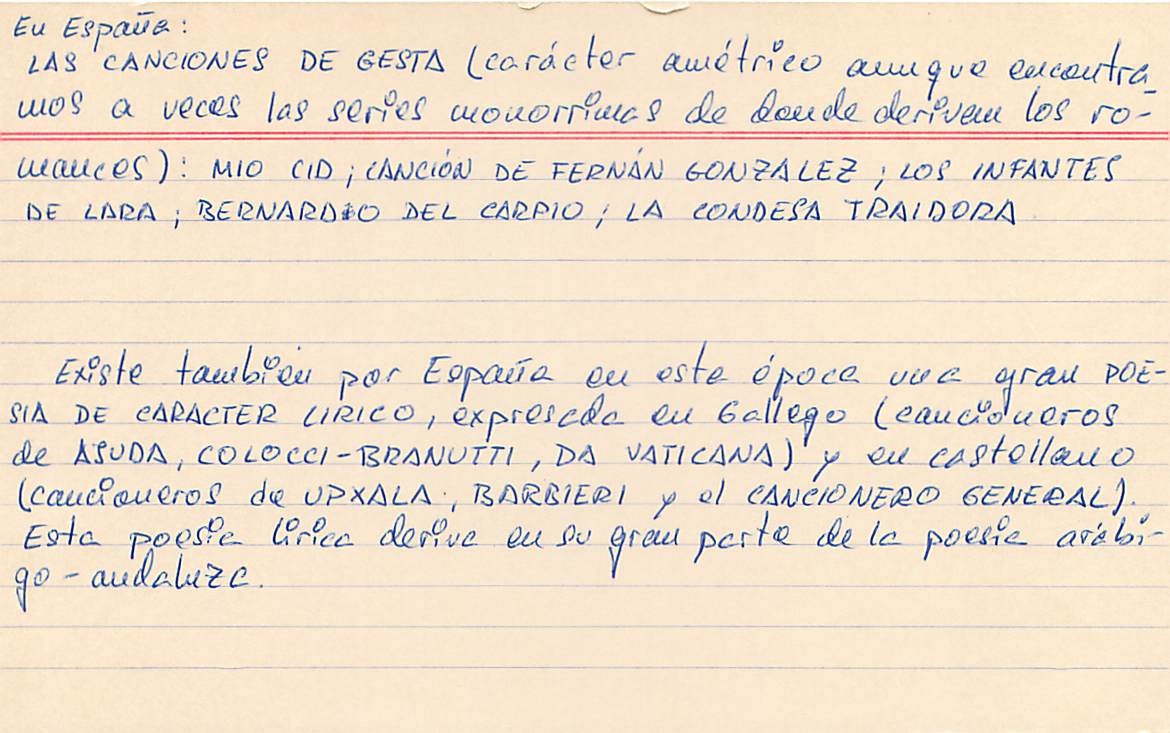 En España:
LAS CANCIONES DE GESTA (carácter amétrico aunque encontra
mos a veces las series monorrimas de donde derivan los ro-
mances): MIO CID; CANCIÓN DE FERNÁN GONZALEZ; LOS INFANTES
DE LARA; BERNARDO DEL CARPIO; LA CONDESA TRAIDORA
Existe también por España en esta época una gran POE-
SIA DE CARACTER LIRICO, expresada en Gallego (cancioneros
de ASUDA, COLOCCI-BRANUTTI, DA VATICANA) y en castellano
(cancioneros de UPXALA, BARBIERI y el CANCIONERO GENERAL).
Esta poesía lírica deriva en su gran parte de la poesía arábi-
go-andaluza.